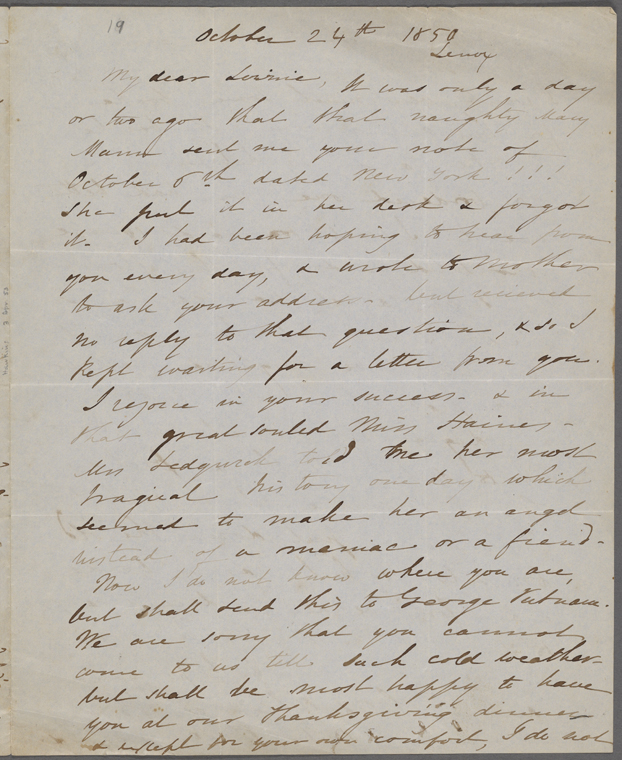 19
October 24th 1850
Lenox
My dear Lizzie, It was only a day
or two ago that that naughty Mary
Mann sent me your note of
October 8th dated New York!!!
She put it in her desk & forgot
it. I had been hoping to hear from
you every day, & wrote to Mother
to ask your address - but received
no reply to that question, & so I
kept waiting for a letter from you.
I rejoice in your success - & in
that great souled Miss Haines -
Mrs Sedgwick told me her most
tragical history one day which
seemed to make her an angel
instead of a maniac or a fiend -
Now I do not know where you are,
but shall send this to George Putnam.
We are sorry that you cannot
come to us till such cold weather -
but shall be most happy to have
you at our thanksgiving dinner
& except for your own comfort, I do not